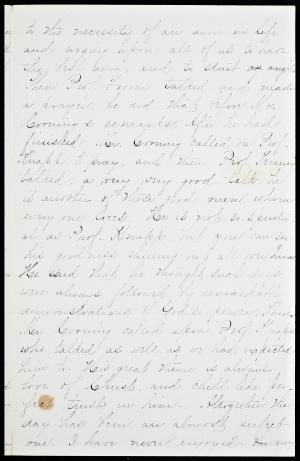 to the necessity of an aim in life
and urging upon all of us to have
the best aim, and to start on aright
Then Prof. talked and made
a prayer he did that before Mr.
Corning's remarks. After he had
finished, Mr. Corning called on Prof.
Knapp to pray, and then Prof.
talked, a very very good talk he
is another of those good men whom
every one loves. He is not so
as Prof. Knapp, but you can see
his goodness shining out all
He said that he thought such days
were always followed by remarkable
demonstrations of God's power. Then
Mr Corning called upon Prof. Knapp
who talked as well as we had expected
him to. His great theme is always
love of Christ, and child like
trust in him. Altogether the
day has been an almost perfect
one. I have never enjoyed any